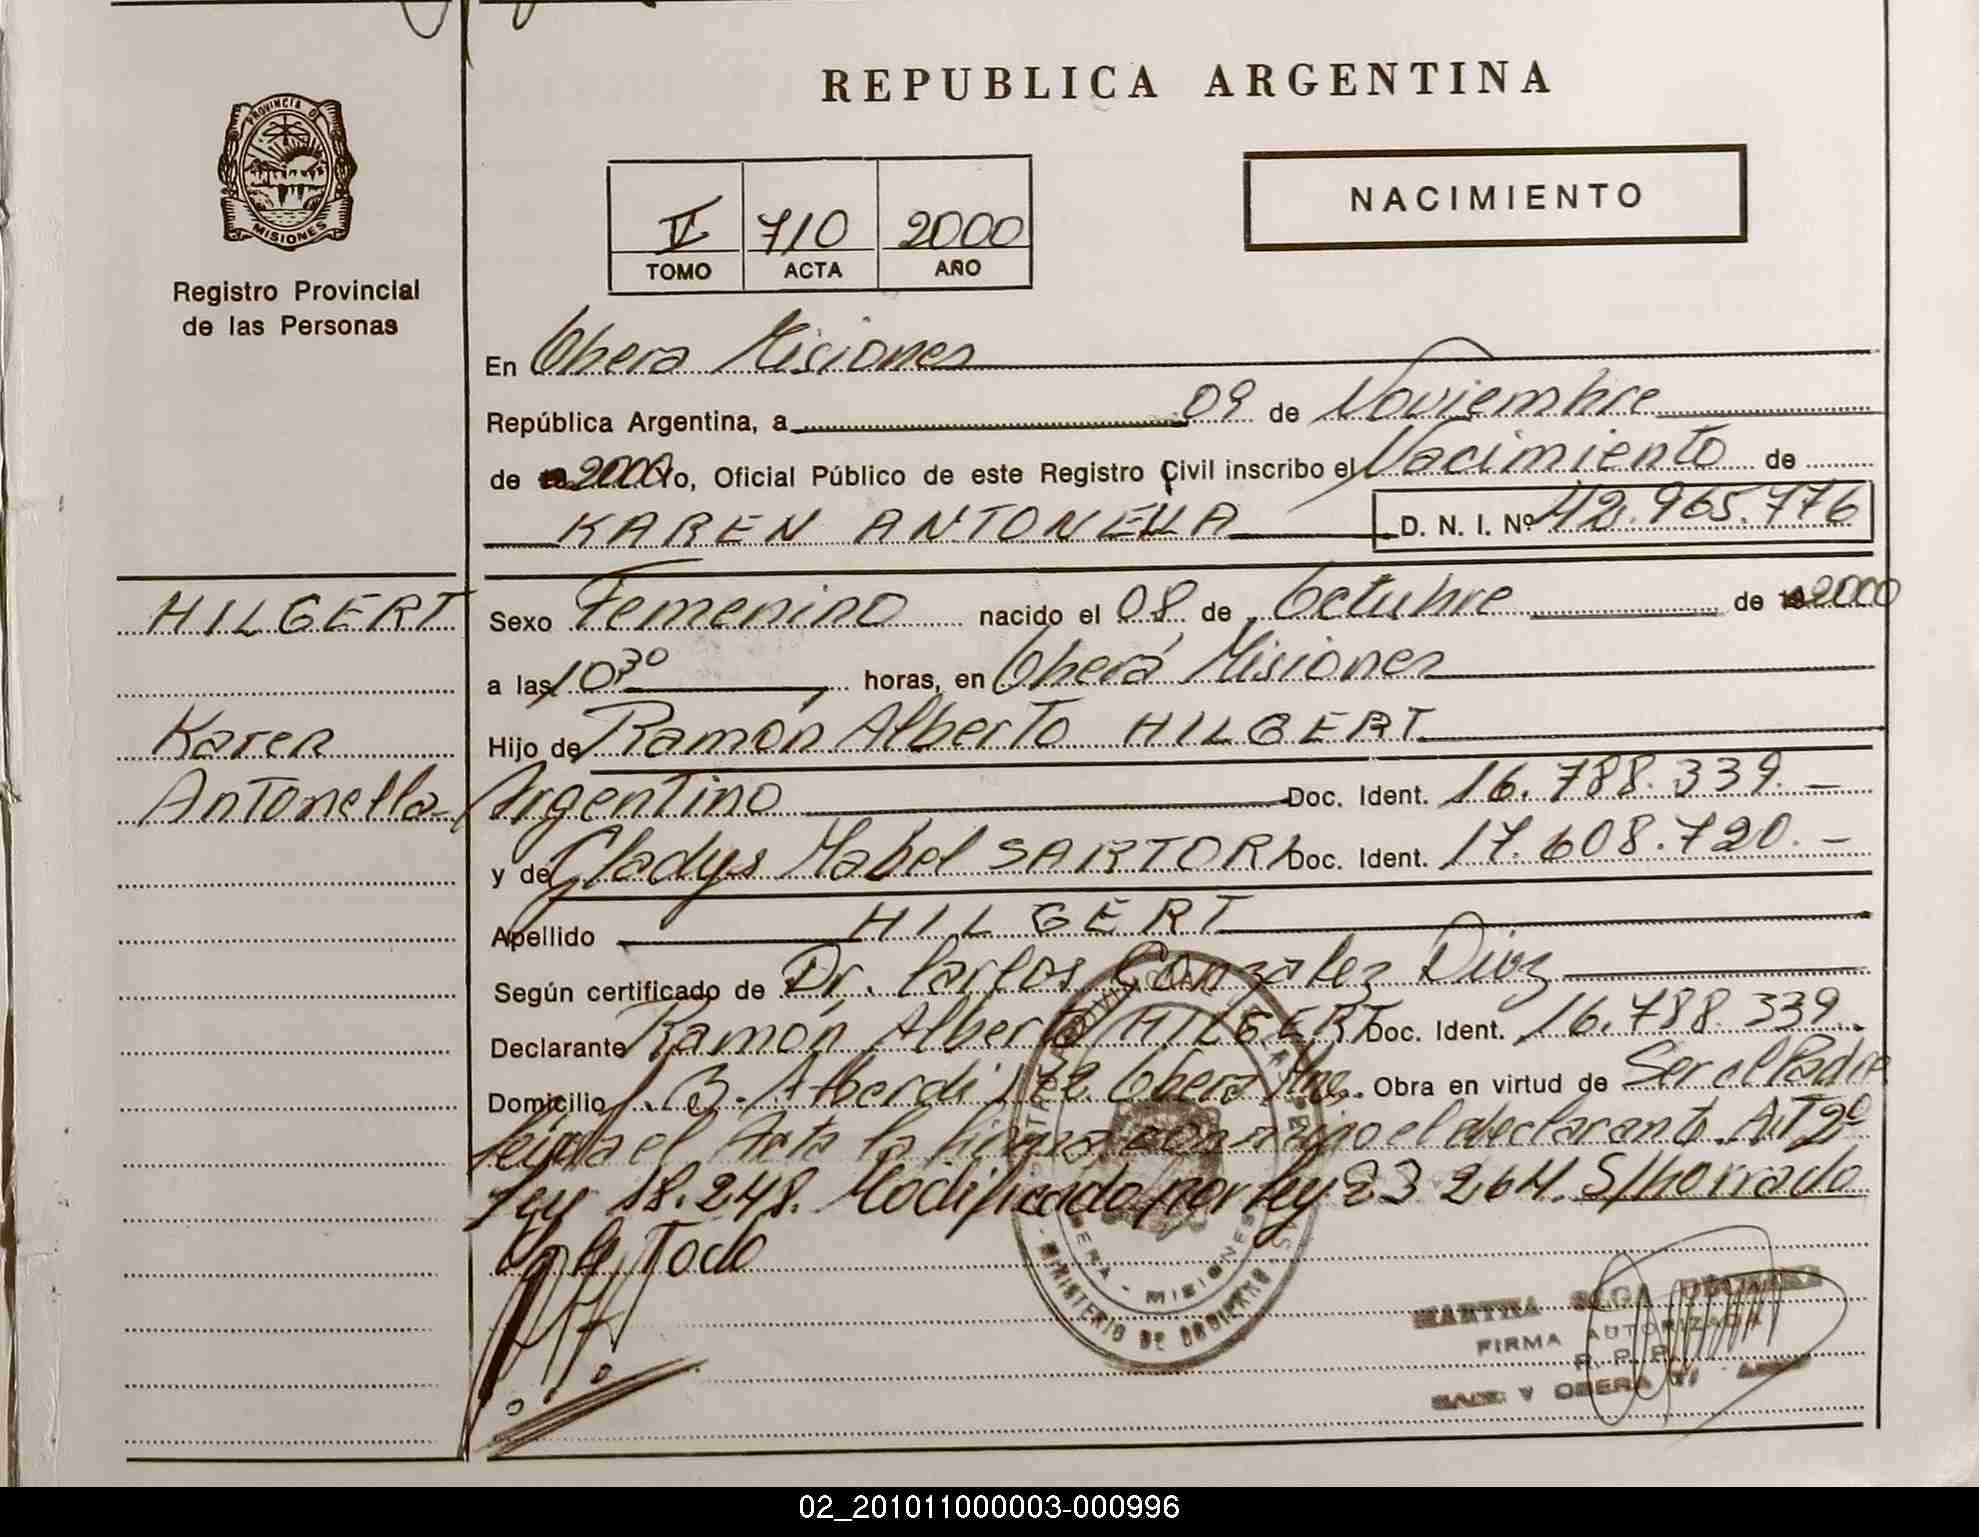 REPUBLICA ARGENTINA
PROVINCIA DE
MISIONES
Registro Provincial
de las Personas
NACIMIENTO
V 710 2000
TOMO ACTA AÑO
En Obera Misiones
República Argentina, a 09 de Noviembre
de 2000 Yo, Oficial Público de este Registro Civil inscribo el Nacimiento de
KAREN ANTONELLA D. N. I. Nº 42.965.776
HILGERT
Karen
Antonella
Sexo Femenino nacido el 08 de Octubre de 2000
a las 10 30 horas, en Oberá Misiones
Hijo de Ramón Alberto HILGERT
Argentino Doc. Ident. 16.788.339.-
y de Gladys Mabel SARTORI Doc. Ident. 17.608.720.-
Apellido HILGERT
Según certificado de Dr. Carlos Gonzalez Dioz
Declarante Ramón Alberto HILGERT Doc. Ident. 16.788.339.
Domicilio J. B. Alberdi 172 Obera Mnes. Obra en virtud de Ser el Padre
Leida el Acta la firma el declarante. ART 2º
Ley 18.248. Modificado por ley 23 264. S/borrado
Todo
OBERA - MISIONES
MINISTERIO DE GOBIERNO
MARTHA OLGA
FIRMA AUTORIZADA
R. P. P.
OBERA
02_201011000003-000996